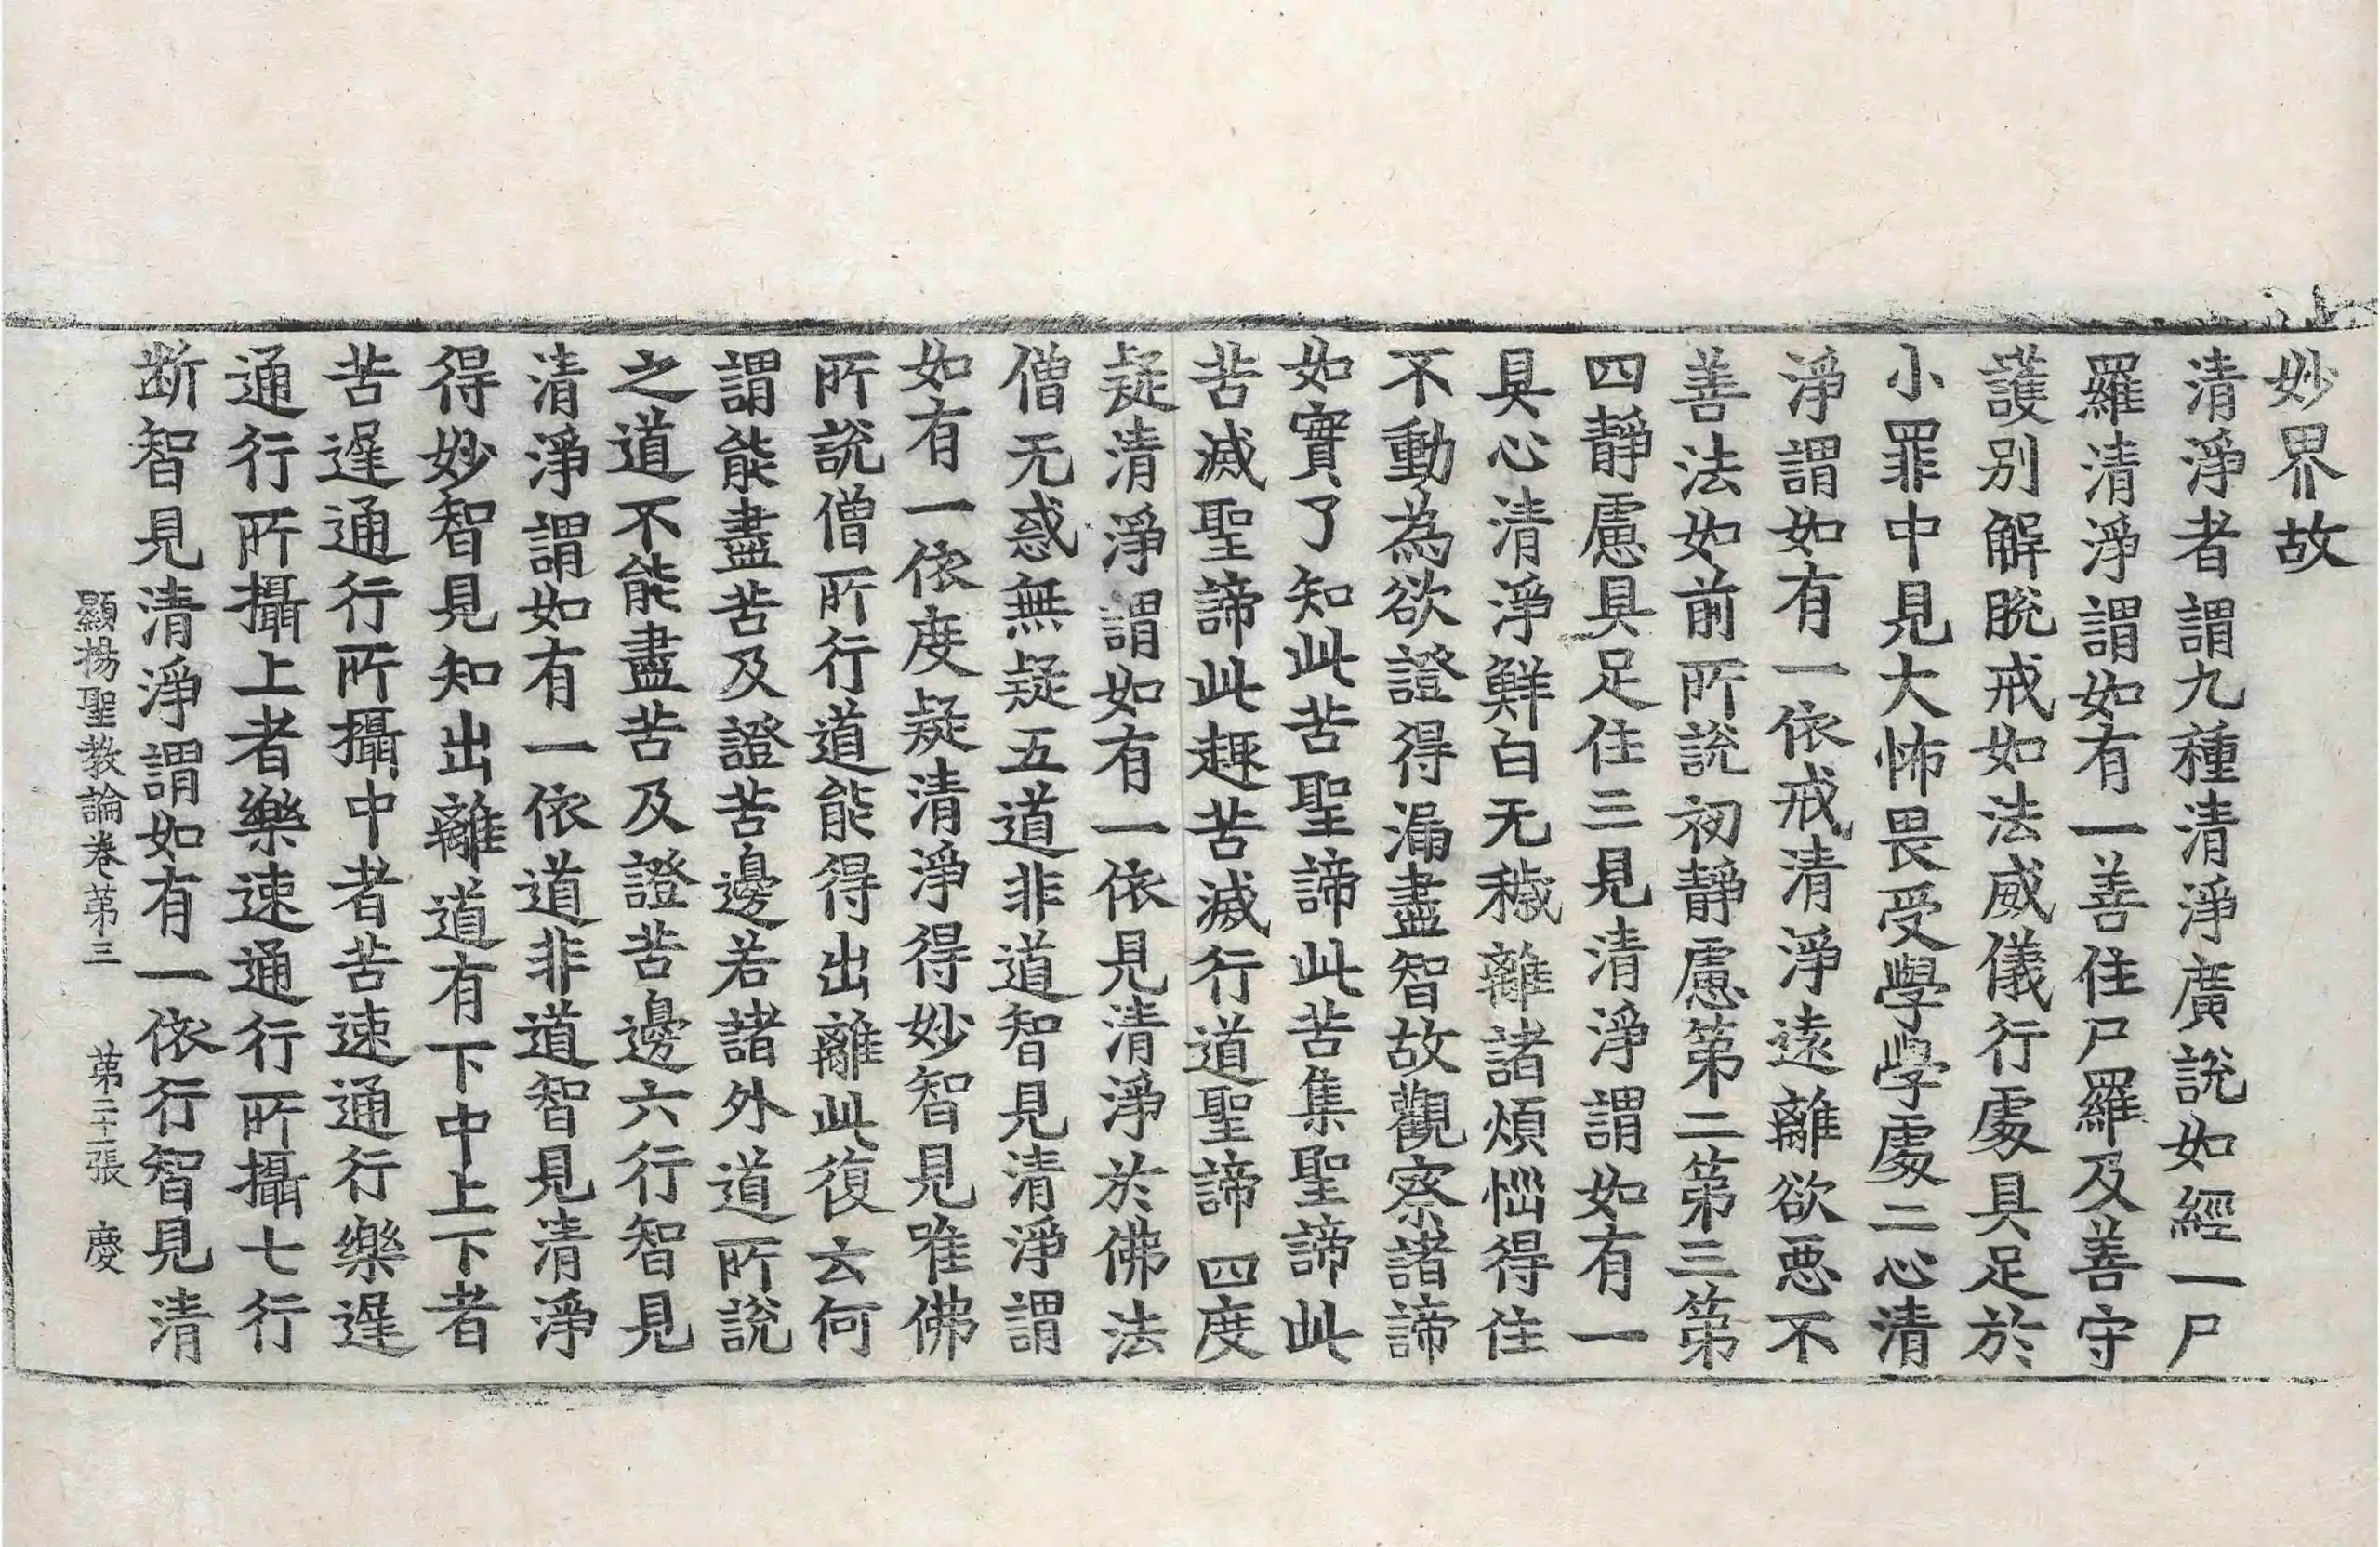 妙界故
清淨者謂九種清淨廣說如經一尸
羅清淨謂如有一善住尸羅及善守
護別解脫戒如法威儀行處具足於
小罪中見大怖畏受學學處二心清
淨謂如有一依戒清淨遠離欲惡不
善法如前所說初靜慮第二第三第
四靜慮具足住三見清淨謂如有一
具心清淨鮮白无穢離諸煩惱得住
不動為欲證得漏盡智故觀察諸諦
如實了知此苦聖諦此苦集聖諦此
苦滅聖諦此趣苦滅行道聖諦四度
疑清淨謂如有一依見清淨於佛法
僧无惑無疑五道非道智見清淨謂
如有一依度疑清淨得妙智見唯佛
所說僧所行道能得出離此復云何
謂能盡苦及證苦邊若諸外道所說
之道不能盡苦及證苦邊六行智見
清淨謂如有一依道非道智見清淨
得妙智見知出離道有下中上下者
苦遲通行所攝中者苦速通行樂遲
通行所攝上者樂速通行所攝七行
断智見清淨謂如有一依行智見清
顯揚聖教論卷第三 第二十張 慶